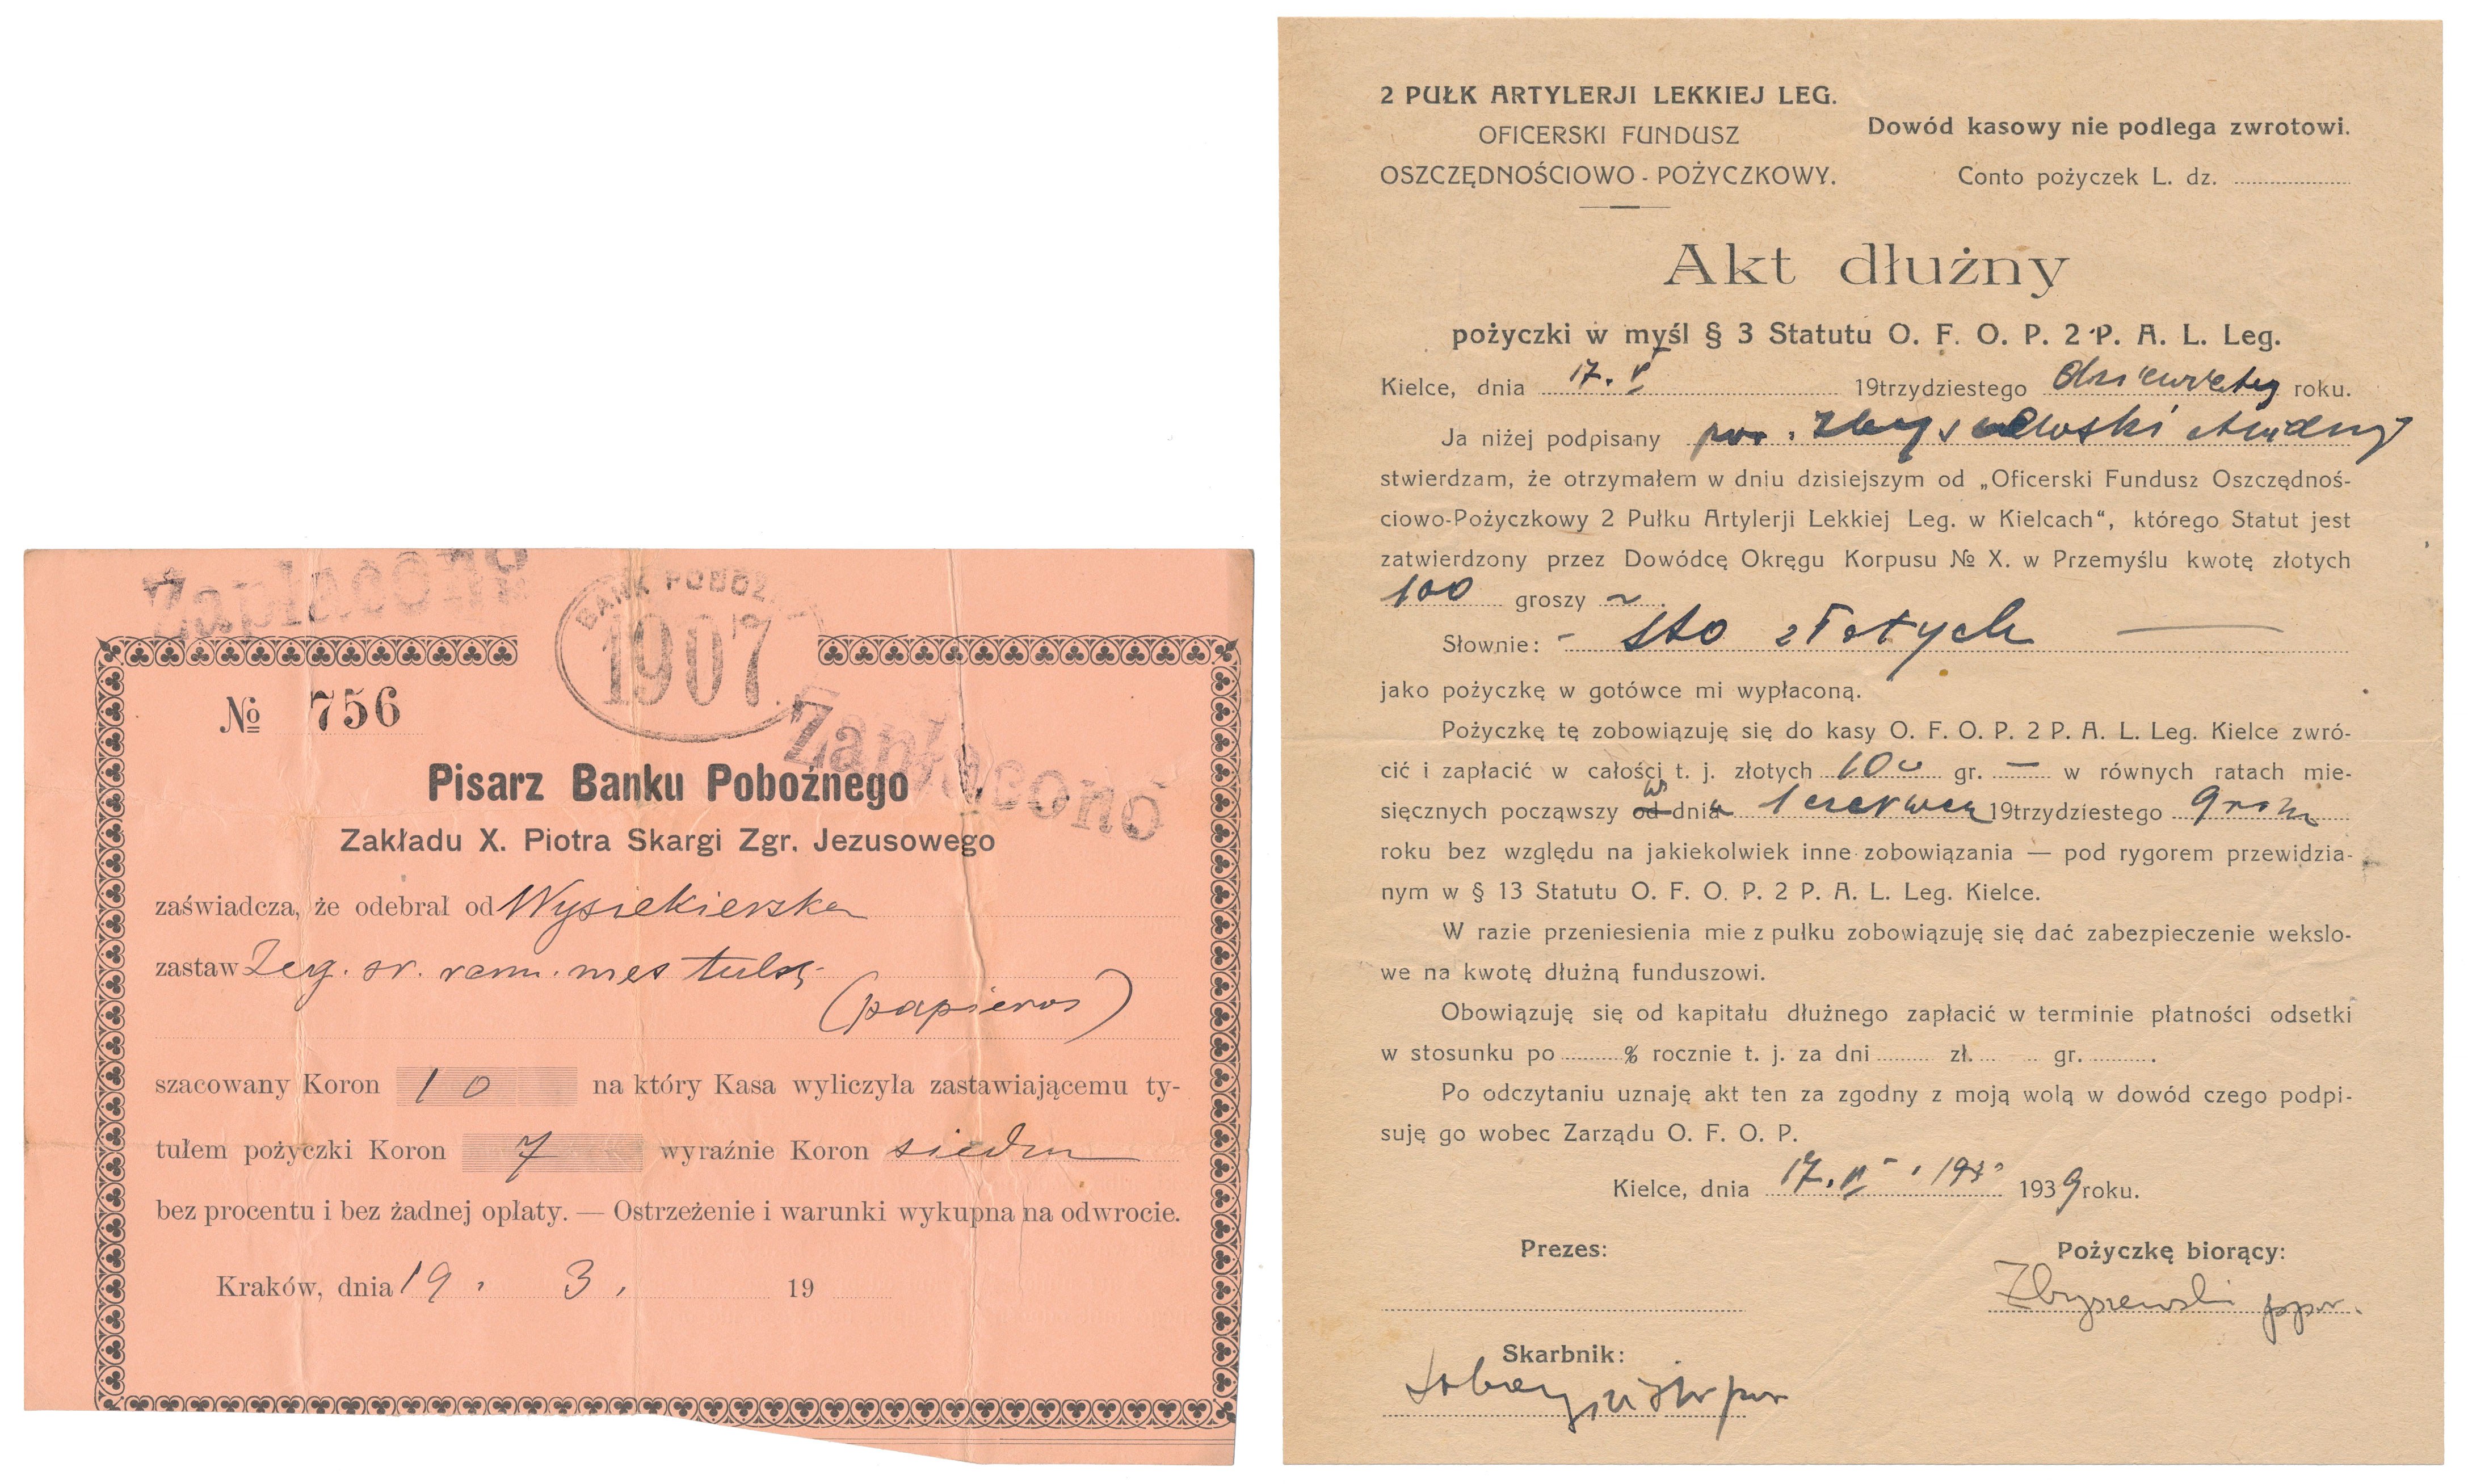 Zapłacono
BANK POBOŻ
1907
№ 756
Zapłacono
Pisarz Banku Pobożnego
Zakładu X. Piotra Skargi Zgr. Jezusowego
zaświadcza, że odebrał od Wysiekierska
zastaw Zeg. sr. rem.
(papieros)
szacowany Koron 10 na który Kasa wyliczyła zastawiającemu ty-
tułem pożyczki Koron 7 wyraźnie Koron siedm
bez procentu i bez żadnej opłaty. — Ostrzeżenie i warunki wykupna na odwrocie.
Kraków, dnia 19. 3. 19
2 PUŁK ARTYLERJI LEKKIEJ LEG.
OFICERSKI FUNDUSZ
OSZCZĘDNOŚCIOWO - POŻYCZKOWY.
Dowód kasowy nie podlega zwrotowi.
Conto pożyczek L. dz.
Akt dłużny
pożyczki w myśl § 3 Statutu O. F. O. P. 2 P. A. L. Leg.
Kielce, dnia 17. V 19trzydziestego dziewiątego roku.
Ja niżej podpisany por. Zbyszewski
stwierdzam, że otrzymałem w dniu dzisiejszym od „Oficerski Fundusz Oszczędnoś-
ciowo-Pożyczkowy 2 Pułku Artylerji Lekkiej Leg. w Kielcach“, którego Statut jest
zatwierdzony przez Dowódcę Okręgu Korpusu № X. w Przemyślu kwotę złotych
100 groszy ~.
Słownie: - sto złotych —
jako pożyczkę w gotówce mi wypłaconą.
Pożyczkę tę zobowiązuję się do kasy O. F. O. P. 2 P. A. L. Leg. Kielce zwró-
cić i zapłacić w całości t. j. złotych 100 gr. — w równych ratach mie-
sięcznych począwszy od dnia 1 czerwca 19trzydziestego 9
roku bez względu na jakiekolwiek inne zobowiązania — pod rygorem przewidzia-
nym w § 13 Statutu O. F. O. P. 2 P. A. L. Leg. Kielce.
W razie przeniesienia mie z pułku zobowiązuję się dać zabezpieczenie wekslo-
we na kwotę dłużną funduszowi.
Obowiązuję się od kapitału dłużnego zapłacić w terminie płatności odsetki
w stosunku po % rocznie t. j. za dni zł. gr. .
Po odczytaniu uznaję akt ten za zgodny z moją wolą w dowód czego podpi-
suję go wobec Zarządu O. F. O. P.
Kielce, dnia 17. V 193 1939 roku.
Prezes:
Pożyczkę biorący:
Zbyszewski ppor.
Skarbnik: